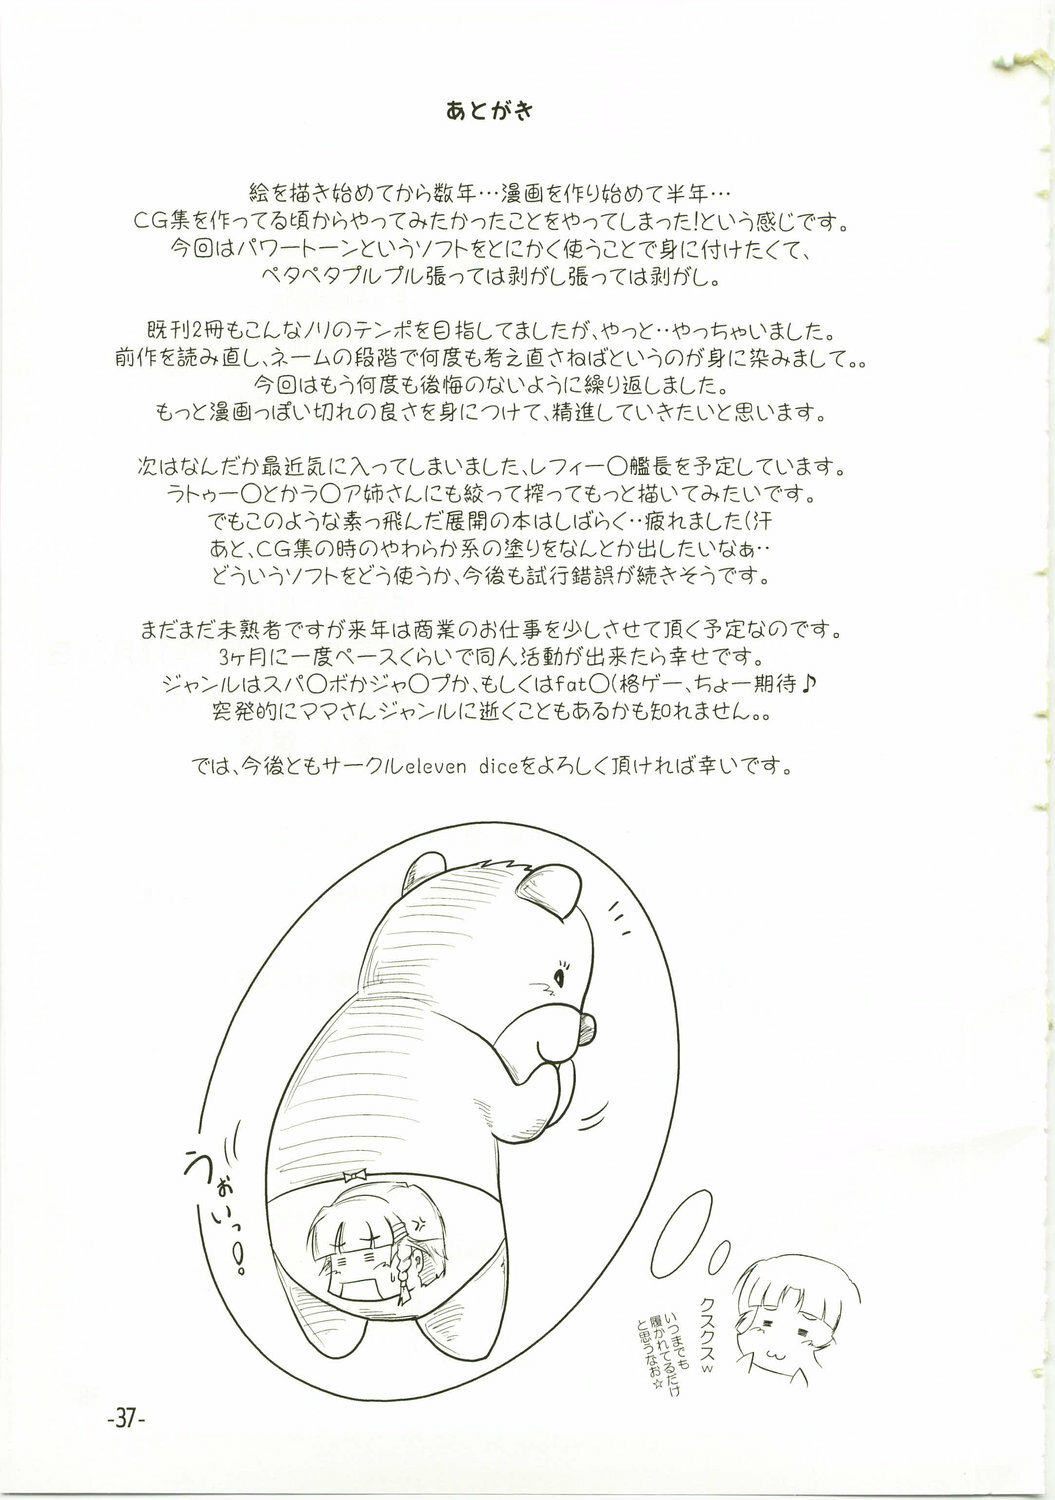 あとがき
絵を描き始めてから数年…漫画を作り始めて半年…
CG集を作ってる頃からやってみたかったことをやってしまった!という感じです。
今回はパワートーンというソフトをとにかく使うことで身に付けたくて、
ペタペタプルプル張っては剥がし張っては剥がし。
既刊2冊もこんなノリのテンポを目指してましたが、やっと‥やっちゃいました。
前作を読み直し、ネームの段階で何度も考え直さねばというのが身に染みまして。。
今回はもう何度も後悔のないように繰り返しました。
もっと漫画っぽい切れの良さを身につけて、精進していきたいと思います。
次はなんだか最近気に入ってしまいました、レフィー○艦長を予定しています。
ラトゥー○とかラ○ア姉さんにも絞って搾ってもっと描いてみたいです。
でもこのような素っ飛んだ展開の本はしばらく‥疲れました(汗
あと、CG集の時のやわらか系の塗りをなんとか出したいなぁ‥
どういうソフトをどう使うか、今後も試行錯誤が続きそうです。
まだまだ未熟者ですが来年は商業のお仕事を少しさせて頂く予定なのです。
3ヶ月に一度ペースくらいで同人活動が出来たら幸せです。
ジャンルはスパ○ボかジャ○プか、もしくはfat○(格ゲー、ちょー期待♪
突発的にママさんジャンルに逝くこともあるかも知れません。。
では、今後ともサークルeleven diceをよろしく頂ければ幸いです。
うぉいっ。
クスクスw
いつまでも
履かれてるだけ
と思うなお☆
-37-